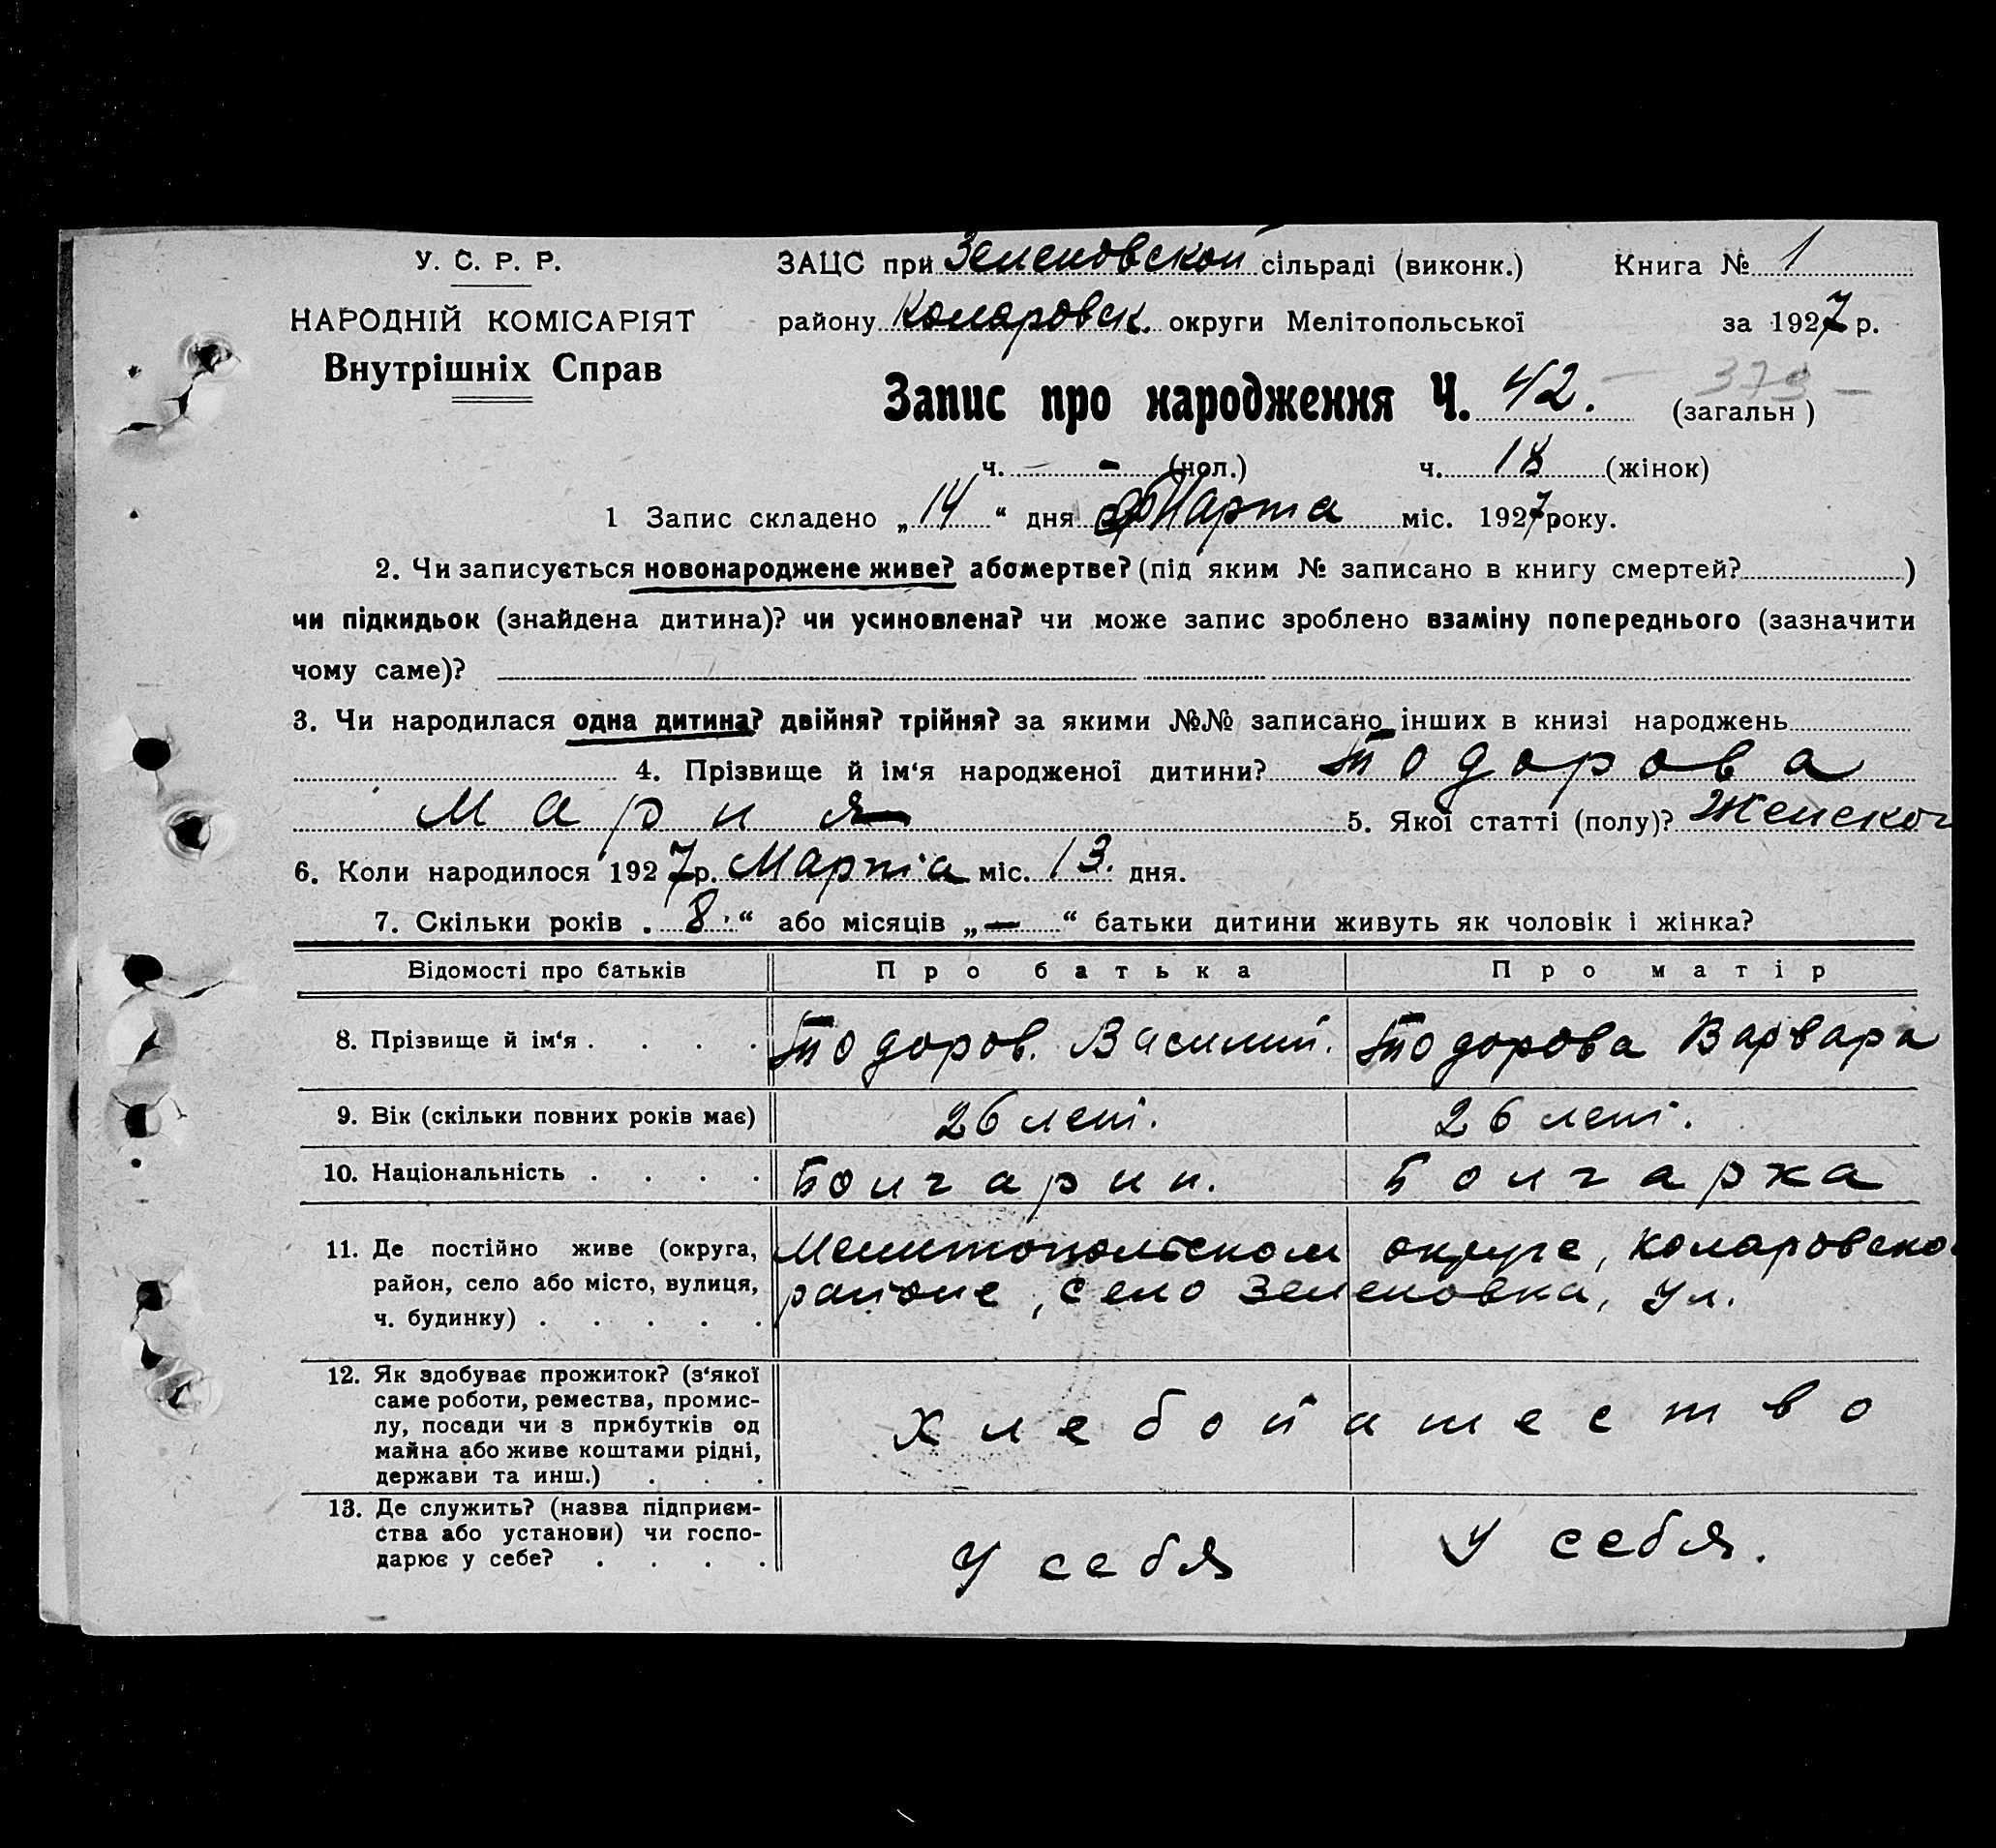 У. С. Р. Р.
НАРОДНІЙ КОМІСАРІЯТ
Внутрішніх Справ
ЗАЦС при Зеленовской сільраді (виконк.) Книга № 1
району Коларовск. округи Мелітопольської за 1927 р.
Запис про народження Ч. 42. (загальн)
379 –
ч. – (чол.) ч. 18 (жінок)
1 Запис складено „14“ дня Марта міс. 1927 року.
2. Чи записується новонароджене живе? або мертве? (під яким № записано в книгу смертей? )
чи підкидьок (знайдена дитина)? чи усиновлена? чи може запис зроблено взаміну попереднього (зазначити
чому саме)?
3. Чи народилася одна дитина? двійня? трійня? за якими №№ записано інших в книзі народжень
4. Прізвище й ім‘я народженої дитини? Тодорова
Мария 5. Якої статті (полу)? Женског
6. Коли народилося 1927 р. Марта міс. 13. дня.
7. Скільки років „8“ або місяців „—“ батьки дитини живуть як чоловік і жінка?
Відомості про батьків Про батька Про матір
8. Прізвище й ім‘я . . . . Тодоров. Василий. Тодорова Варвара
9. Вік (скільки повних років має) 26 лет. 26 лет.
10. Національність . . . . Болгарин. Болгарка
11. Де постійно живе (округа, Мелитопольском округе, Коларовско
район, село або місто, вулиця, районе, село Зеленовка, ул.
ч. будинку) . . . . .
12. Як здобуває прожиток? (з‘якої
саме роботи, ремества, промис-
лу, посади чи з прибутків од Хлебопашество
майна або живе коштами рідні,
держави та инш.) . . .
13. Де служить? (назва підприєм-
ства або установи) чи госпо- У себя У себя.
дарює у себе? . . . .